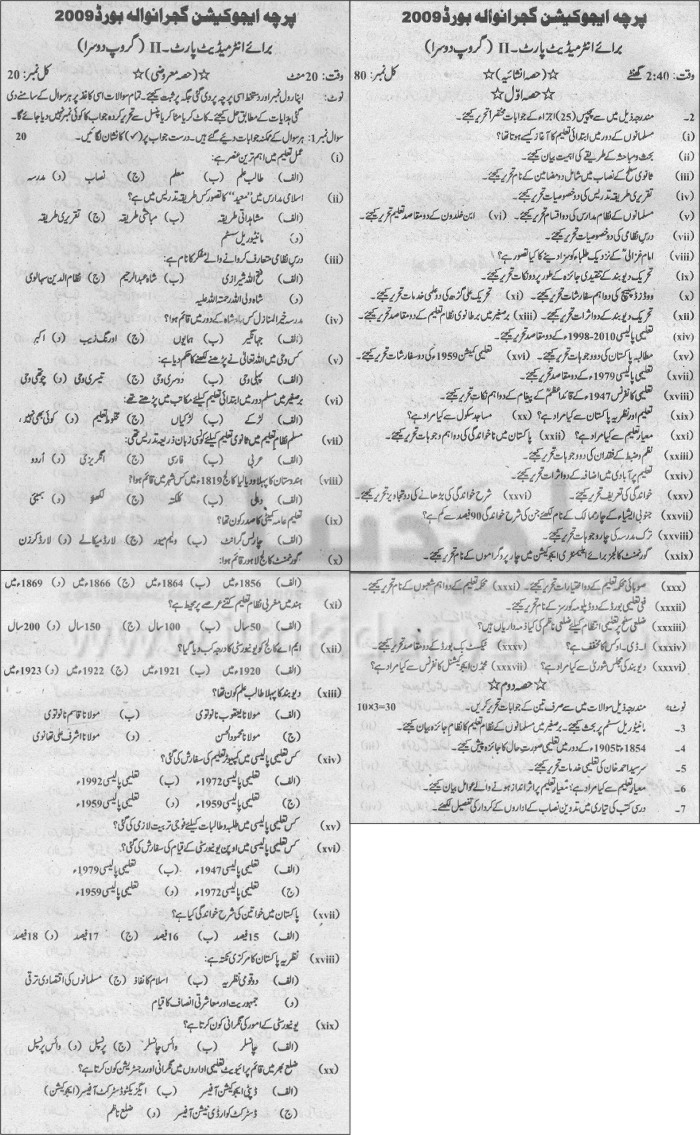 پرچہ ایجوکیشن گجرانوالہ بورڈ 2009
برائے انٹرمیڈیٹ پارٹ۔ II (گروپ دوسرا)
وقت: 20 منٹ ☆(حصہ معروضی)☆ کل نمبر: 20
نوٹ: اپنا رول نمبر اور دستخط اسی پرچہ پر دی گئی جگہ پر ثبت کیجئے۔ تمام سوالات اسی کاغذ پر ہر سوال کے سامنے دی
گئی ہدایات کے مطابق حل کیجئے۔ کاٹ کر یا مٹا کر یا پنسل سے تحریر کردہ جواب کا کوئی نمبر نہیں دیا جائے گا۔
سوال نمبر 1: ہر سوال کے ممکنہ جوابات دیے گئے ہیں۔ درست جواب پر (✓) کا نشان لگائیں۔ 20
(i) عمل تعلیم میں اہم ترین عنصر ہے:
(الف) طالب علم (ب) معلم (ج) نصاب (د) مدرسہ
(ii) اسلامی مدارس میں "معید" کا تصور کس طریقہ تدریس میں ہے؟
(الف) مشاہداتی طریقہ (ب) مباحثی طریقہ (ج) تقریری طریقہ
(د) مانیٹوریل سسٹم
(iii) درس نظامی متعارف کروانے والے مفکر کا نام ہے:
(الف) فتح اللہ شیرازی (ب) شاہ عبدالرحیم (ج) نظام الدین سہالوی
(د) شاہ ولی اللہ رحمتہ اللہ علیہ
(iv) مدرسہ خیرالمنازل کس بادشاہ کے دور میں قائم ہوا؟
(الف) جہانگیر (ب) ہمایوں (ج) اورنگ زیب (د) اکبر
(v) کس وحی میں اللہ تعالیٰ نے پڑھنے لکھنے کا حکم دیا ہے:
(الف) پہلی وحی (ب) دوسری وحی (ج) تیسری وحی (د) چوتھی وحی
(vi) برصغیر میں مسلم دور میں ابتدائی تعلیم کیلئے مکاتب میں پڑھتے تھے:
(الف) لڑکے (ب) لڑکیاں (ج) مخلوط تعلیم (د) کوئی بھی نہیں
(vii) مسلم نظام تعلیم میں ثانوی تعلیم کیلئے کونسی زبان ذریعہ تدریس تھی:
(الف) عربی (ب) فارسی (ج) انگریزی (د) اُردو
(viii) ہندوستان کا پہلا ودیالیا کالج 1819ء میں کس شہر میں قائم ہوا؟
(الف) دہلی (ب) کلکتہ (ج) لکھنؤ (د) بمبئی
(ix) تعلیم عامہ کمیٹی کا صدر کون تھا؟
(الف) چارلس گرانٹ (ب) ولیم میور (ج) لارڈ میکالے (د) لارڈ کرزن
(x) گورنمنٹ کالج لاہور قائم ہوا:
(الف) 1856ء میں (ب) 1864ء میں (ج) 1866ء میں (د) 1869ء میں
(xi) ہند میں مغربی نظام تعلیم کتنے عرصے پر محیط ہے؟
(الف) 50 سال (ب) 100 سال (ج) 150 سال (د) 200 سال
(xii) ایم اے کالج کو یونیورسٹی کا درجہ کب دیا گیا؟
(الف) 1920ء میں (ب) 1921ء میں (ج) 1922ء میں (د) 1923ء میں
(xiii) دیوبند کا پہلا طالب علم کون تھا؟
(الف) مولانا یعقوب نانوتوی (ب) مولانا قاسم نانوتوی
(ج) مولانا محمود الحسن (د) مولانا اشرف علی تھانوی
(xiv) کس تعلیمی پالیسی میں کمپیوٹر تعلیم کی سفارش کی گئی؟
(الف) تعلیمی پالیسی 1972ء (ب) تعلیمی پالیسی 1992ء
(ج) تعلیمی پالیسی 1959ء (د) تعلیمی پالیسی 1959ء
(xv) کس تعلیمی پالیسی میں طلبہ و طالبات کیلئے فوجی تربیت لازمی کی گئی؟
(xvi) کس تعلیمی پالیسی میں اوپن یونیورسٹی کے قیام کی سفارش کی گئی؟
(الف) تعلیمی پالیسی 1947ء (ب) تعلیمی پالیسی 1979ء
(ج) تعلیمی پالیسی 1972ء (د) تعلیمی پالیسی 1959ء
(xvii) پاکستان میں خواتین کی شرح خواندگی کیا ہے؟
(الف) 15 فیصد (ب) 16 فیصد (ج) 17 فیصد (د) 18 فیصد
(xviii) نظریہ پاکستان کا مرکزی نکتہ ہے:
(الف) دو قومی نظریہ (ب) اسلام کا نفاذ (ج) مسلمانوں کی اقتصادی ترقی
(د) جمہوریت اور معاشرتی انصاف کا قیام
(xix) یونیورسٹی کے امور کی نگرانی کون کرتا ہے؟
(الف) چانسلر (ب) وائس چانسلر (ج) پرنسپل (د) وائس پرنسپل
(xx) ضلع بھر میں قائم پرائیویٹ تعلیمی اداروں میں نگرانی اور رجسٹریشن کون کرتا ہے؟
(الف) ڈپٹی ایجوکیشن آفیسر (ب) ایگزیکٹو ڈسٹرکٹ آفیسر (ایجوکیشن)
(ج) ڈسٹرکٹ کوارڈی نیشن آفیسر (د) ضلع ناظم
پرچہ ایجوکیشن گجرانوالہ بورڈ 2009
برائے انٹرمیڈیٹ پارٹ۔ II (گروپ دوسرا)
وقت: 2:40 گھنٹے ☆(حصہ انشائیہ)☆ کل نمبر: 80
☆ حصہ اوّل ☆
2۔ مندرجہ ذیل میں سے پچیس (25) اجزاء کے جوابات مختصراً تحریر کیجئے۔
(i) مسلمانوں کے دور میں ابتدائی تعلیم کا آغاز کیسے ہوتا تھا؟
(ii) بحث و مباحثہ کے طریقے کی اہمیت بیان کیجئے۔
(iii) ثانوی سطح کے نصاب میں شامل دو مضامین کے نام تحریر کیجئے۔
(iv) تقریری طریقہ تدریس کی دو خصوصیات تحریر کیجئے۔
(v) مسلمانوں کے نظام مدارس کی دو اقسام تحریر کیجئے۔ (vi) ابن خلدون کے دو مقاصد تعلیم تحریر کیجئے۔
(vii) درس نظامی کی دو خصوصیات تحریر کیجئے۔
(viii) امام غزالیؒ کے نزدیک طلباء کو سزا دینے کا کیا تصور ہے؟
(ix) تحریک دیوبند کے تنقیدی جائزہ کے طور پر دو نکات تحریر کیجئے۔
(x) ووڈز ڈسپیچ کی دو اہم سفارشات تحریر کیجئے۔ (xi) تحریک علی گڑھ کی دو علمی خدمات تحریر کیجئے۔
(xii) تحریک دیوبند کے دو اثرات تحریر کیجئے۔ (xiii) برصغیر میں برطانوی نظام تعلیم کے دو مقاصد تحریر کیجئے۔
(xiv) تعلیمی پالیسی 2010-1998ء کے دو مقاصد تحریر کیجئے۔
(xv) مطالبہ پاکستان کی دو وجوہات تحریر کیجئے۔ (xvi) تعلیمی کمیشن 1959ء کی دو سفارشات تحریر کیجئے۔
(xvii) تعلیمی پالیسی 1979ء کے دو مقاصد تحریر کیجئے۔
(xviii) تعلیمی کانفرنس 1947ء کے قائداعظمؒ کے پیغام کے دو اہم نکات تحریر کیجئے۔
(xix) تعلیم اور نظریہ پاکستان سے کیا مراد ہے؟ (xx) مساجد سکول سے کیا مراد ہے؟
(xxi) معیار تعلیم سے کیا مراد ہے؟ (xxii) پاکستان میں ناخواندگی کی دو اہم وجوہات تحریر کیجئے۔
(xxiii) نظم و ضبط کے فقدان کی دو وجوہات تحریر کیجئے۔
(xxiv) تعلیم پر آبادی میں اضافہ کے دو اثرات تحریر کیجئے۔
(xxv) خواندگی کی تعریف تحریر کیجئے۔ (xxvi) شرح خواندگی کی بڑھانے کی دو تجاویز تحریر کیجئے۔
(xxvii) جنوبی ایشیاء کے چار ممالک کے نام لکھئے جن کی شرح خواندگی 90 فیصد سے کم ہے؟
(xxviii) ترک مدرسہ کی چار وجوہات تحریر کیجئے۔
(xxix) گورنمنٹ کالج برائے ایلیمنٹری ایجوکیشن میں چار پروگراموں کے نام تحریر کیجئے۔
(xxx) صوبائی محکمہ تعلیم کے دو اختیارات تحریر کیجئے۔ (xxxi) محکمہ تعلیم کے دو اہم شعبوں کے نام تحریر کیجئے۔
(xxxii) فنی تعلیمی بورڈ کے دو ڈپلومہ کورسز کے نام تحریر کیجئے۔
(xxxiii) ضلعی سطح پر تعلیمی انتظام کیلئے ضلعی ناظم کی کیا ذمہ داریاں ہیں؟
(xxxiv) ای۔ ڈی۔ او کس کا مخفف ہے؟ (xxxv) ٹیکسٹ بک بورڈ کے دو مقاصد تحریر کیجئے۔
(xxxvi) دیوبند کی مجلس شوریٰ سے کیا مراد ہے؟ (xxxvii) محمڈن ایجوکیشنل کانفرنس سے کیا مراد ہے؟
☆ حصہ دوم ☆
نوٹ:۔ مندرجہ ذیل سوالات میں سے صرف تین کے جوابات تحریر کریں۔ 10×3=30
3۔ مانیٹوریل سسٹم پر بحث کیجئے۔ برصغیر میں مسلمانوں کے نظام تعلیم کا نظام جائزہ بیان کیجئے۔
4۔ 1854 تا 1905ء کے دور میں تعلیمی صورت حال کا جائزہ پیش کیجئے۔
5۔ سرسید احمد خان کی تعلیمی خدمات تحریر کیجئے۔
6۔ معیار تعلیم سے کیا مراد ہے؟ معیار تعلیم پر اثر انداز ہونے والے عوامل بیان کیجئے۔
7۔ درسی کتب کی تیاری میں تدوین نصاب کے اداروں کے کردار کی تفصیل لکھئے۔